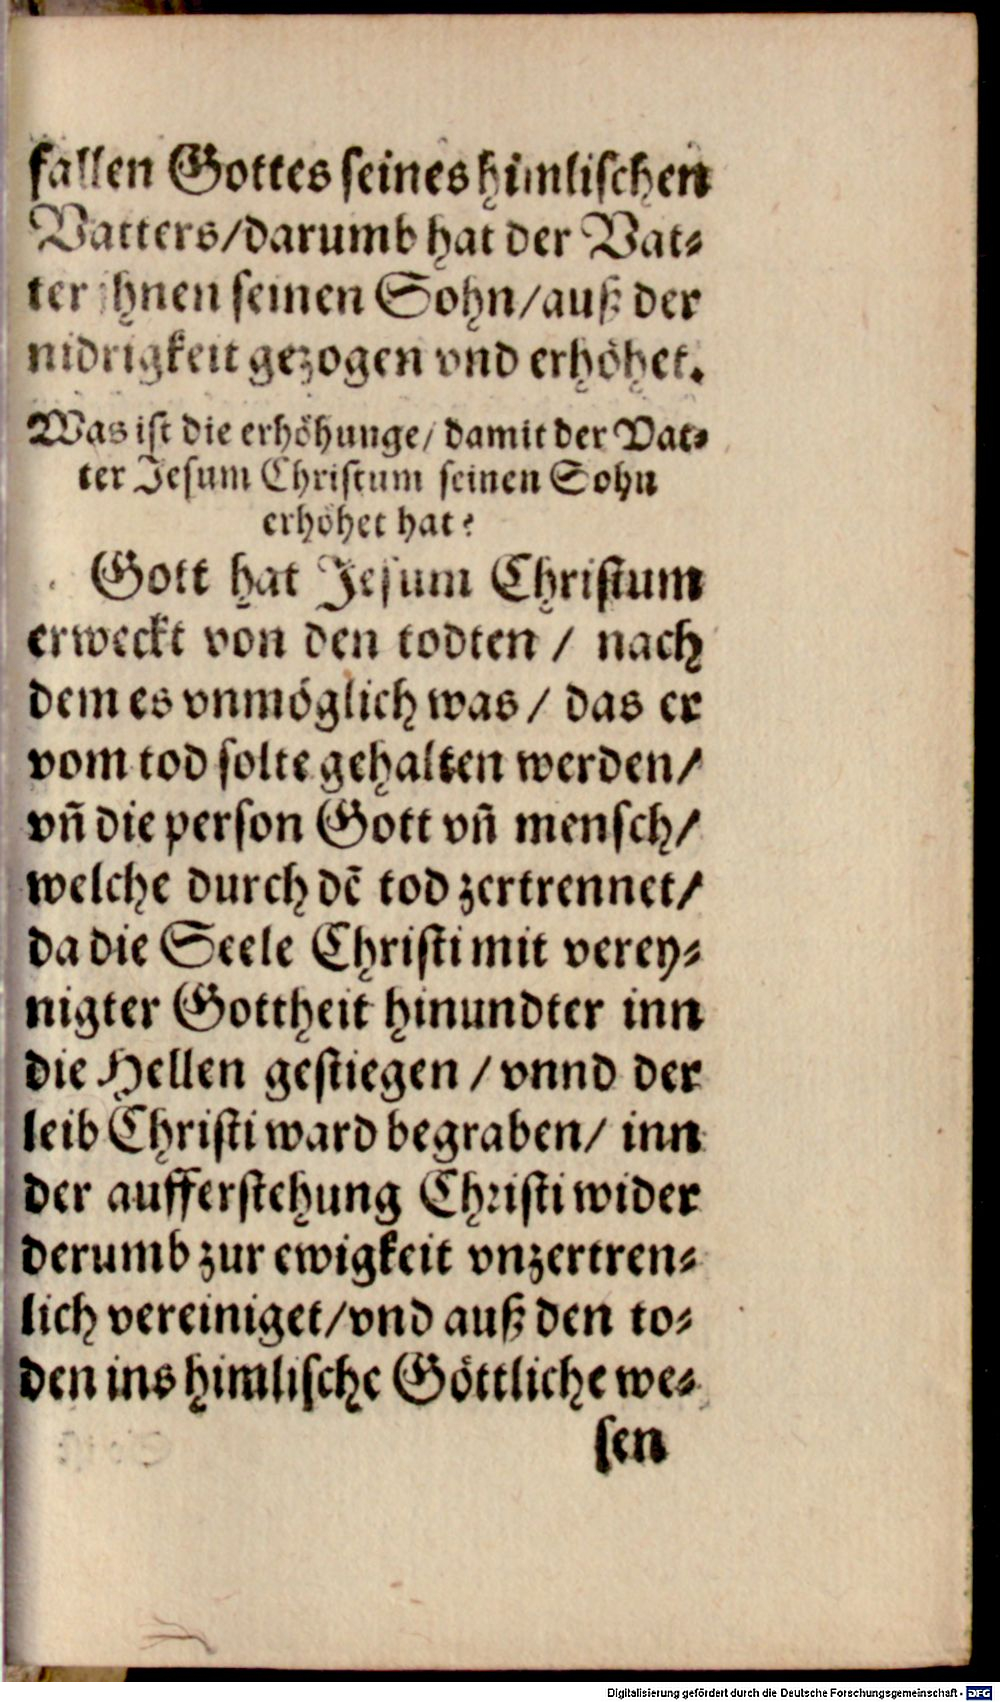 fallen Gottes seines himlischen
Vatters/darumb hat der Vat⸗
ter ihnen seinen Sohn/auß der
nidrigkeit gezogen vnd erhöhet.
Was ist die erhöhunge/ damit der Vat⸗
ter Jesum Christum seinen Sohn
erhöhet hat?
Gott hat Jesum Christum
erweckt von den todten / nach
dem es vnmöglich was / das er
vom tod solte gehalten werden/
vñ die person Gott vñ mensch/
welche durch dẽ tod zertrennet/
da die Seele Christi mit verey⸗
nigter Gottheit hinundter inn
die Hellen gestiegen / vnnd der
leib Christi ward begraben/ inn
der aufferstehung Christi wider
derumb zur ewigkeit vnzertren⸗
lich vereiniget/vnd auß den to⸗
den ins himlische Göttliche we⸗
sen
Digitalisierung gefördert durch die Deutsche Forschungsgemeinschaft - DFG